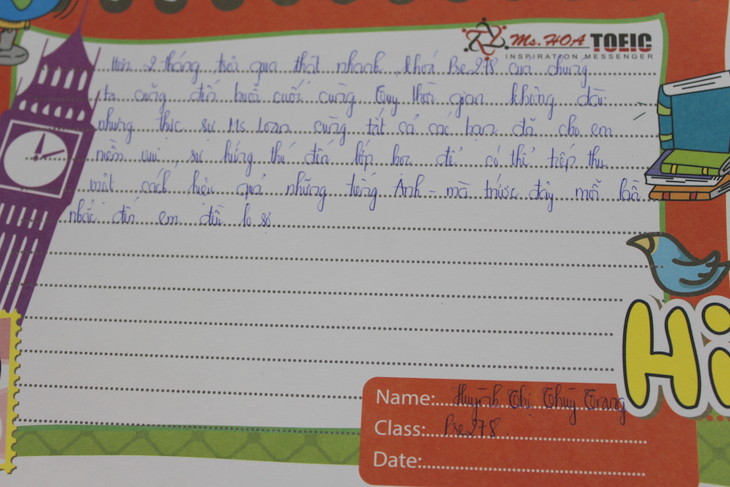 Ms. HOA TOEIC
INSPIRATION MESSENGER
Hơn 2 tháng trôi qua thật nhanh, khoá Pre278 của chúng
ta cũng đến buổi cuối cùng. Tuy thời gian không dài
nhưng thực sự Ms. Loan cùng tất cả các bạn đã cho em
niềm vui, sự hứng thú đến lớp học để có thể tiếp thu
một cách hiệu quả những tiếng Anh - mà trước đây mỗi lần
nhắc đến em đều lo sợ
Hi
Name: Huỳnh Thị Thùy Trang
Class: Pre278
Date: